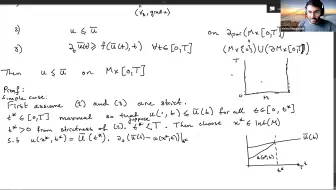 (x₀, g(x₀)x
2) u ≤ ū on ∂par (M×[0,T])
3) ∂ₜū ≥ f(ū(t), t) ∀t∈[0,T] (M×{0}) ∪ (∂M×[0,T])
Then u ≤ ū on M×[0,T]
T
M
Proof:
Simple case:
First assume (2) and (3) are strict.
t* ∈ [0,T] maximal so that u(·,t) ≤ ū(t) for all t∈[0,t*]
t* > 0 from strictness of (2). Suppose t* < T. Then choose x* ∈ int(M)
s.t u(x*,t*) = ū(t*). ∂ₜ(ū(t) - u(x*,t))|t*
ū(t)
u(x*,t)
t*